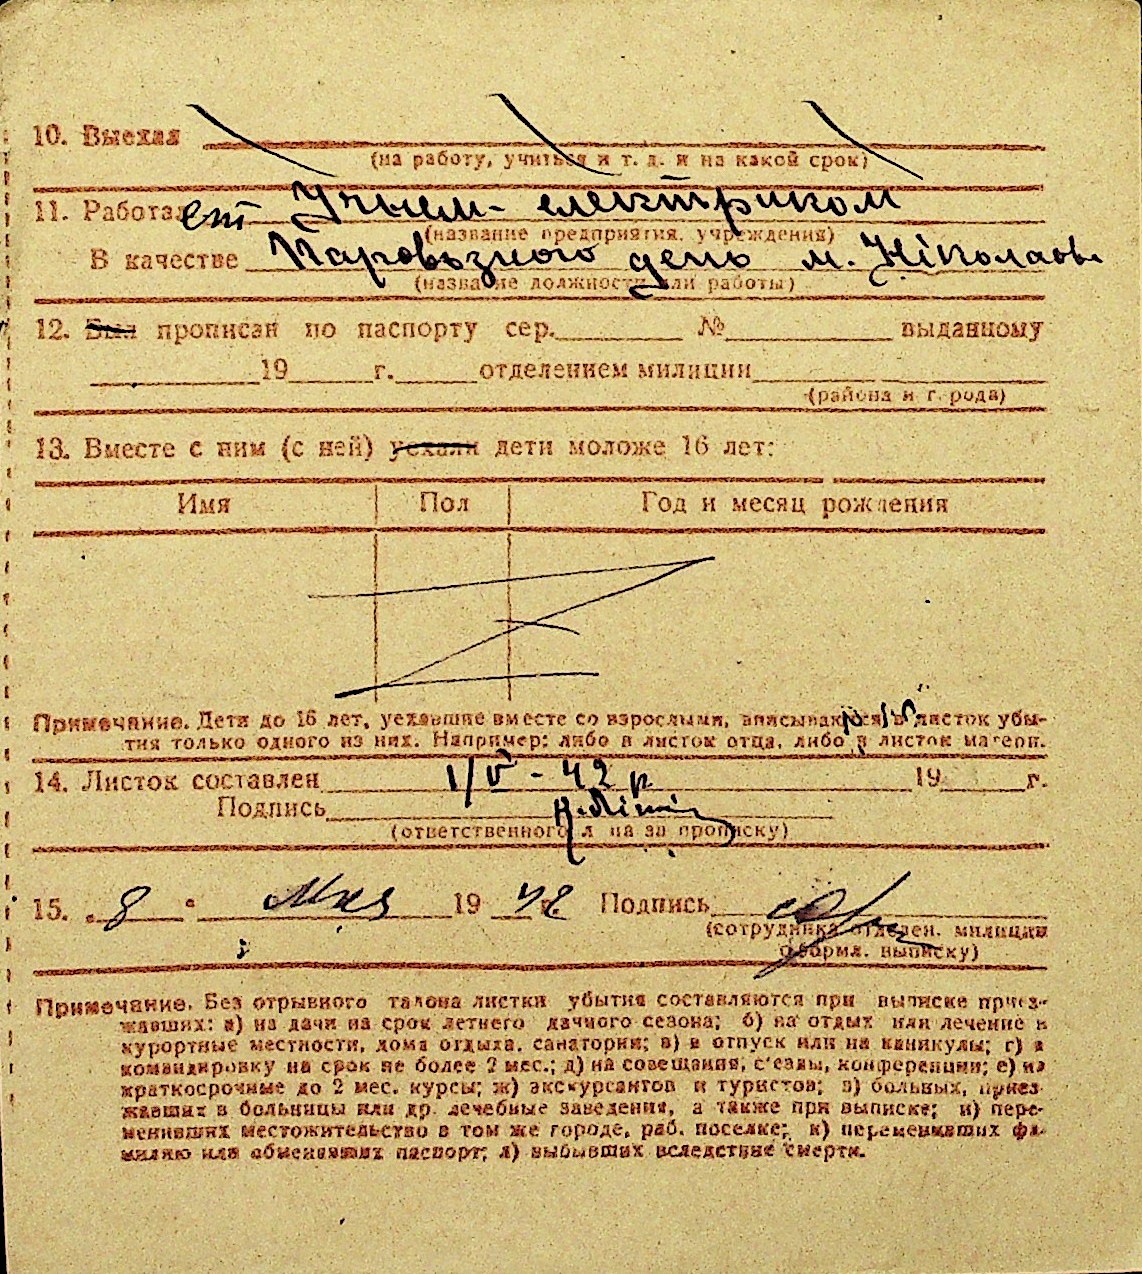 10. Выехал
(на работу, учиться и т. д. и на какой срок)
11. Работает Учнем-електриком
(название предприятия, учреждения)
В качестве Паровозного депо м. Ніколаєв
(название должности или работы)
12. Был прописан по паспорту сер. № выданному
19 г. отделением милиции
(района и города)
13. Вместе с ним (с ней) уехали дети моложе 16 лет:
Имя Пол Год и месяц рождения
Примечание. Дети до 16 лет, уехавшие вместе со взрослыми, вписываются в листок убы-
тия только одного из них. Например: либо в листок отца, либо в листок матери.
14. Листок составлен 1/V - 42 р 19 г.
Подпись
(ответственного л на за прописку)
15. „8" Мая 19 42 г. Подпись
(сотрудника отделен. милиции
оформл. выписку)
Примечание. Без отрывного талона листки убытия составляются при выписке приез-
жавших: а) на дачи на срок летнего дачного сезона; б) на отдых или лечение в
курортные местности, дома отдыха, санатории; в) в отпуск или на каникулы; г) в
командировку на срок не более 2 мес.; д) на совещания, с'езды, конференции; е) на
краткосрочные до 2 мес. курсы; ж) экскурсантов и туристов; з) больных, приез-
жавших в больницы или др. лечебные заведения, а также при выписке; и) пере-
менивших местожительство в том же городе, раб. поселке; к) переменивших фа-
милию или обменявших паспорт; л) выбывших вследствие смерти.